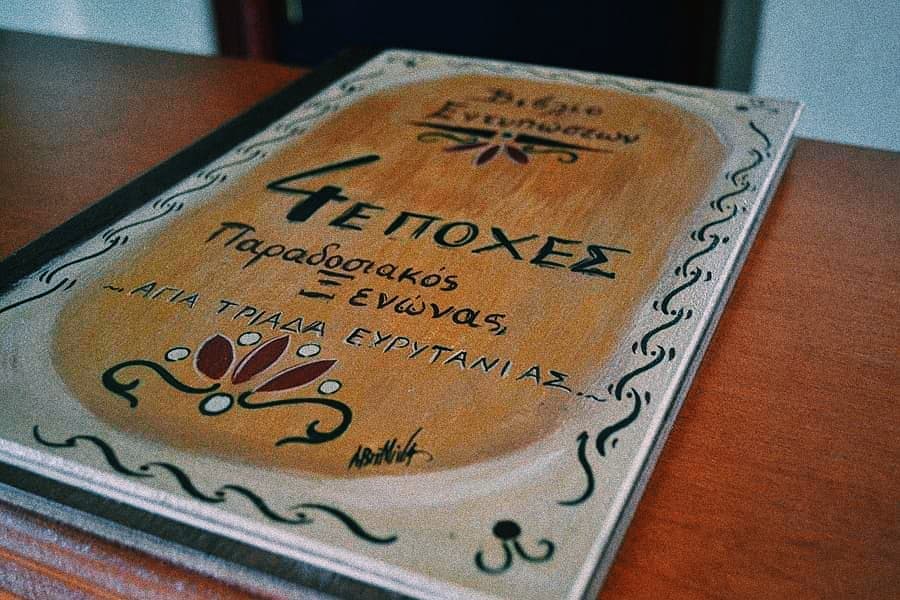 Βιβλίο
Εντυπώσεων
4 ΕΠΟΧΕΣ
Παραδοσιακός
Ξενώνας,
~..ΑΓΙΑ ΤΡΙΑΔΑ ΕΥΡΥΤΑΝΙΑΣ..~